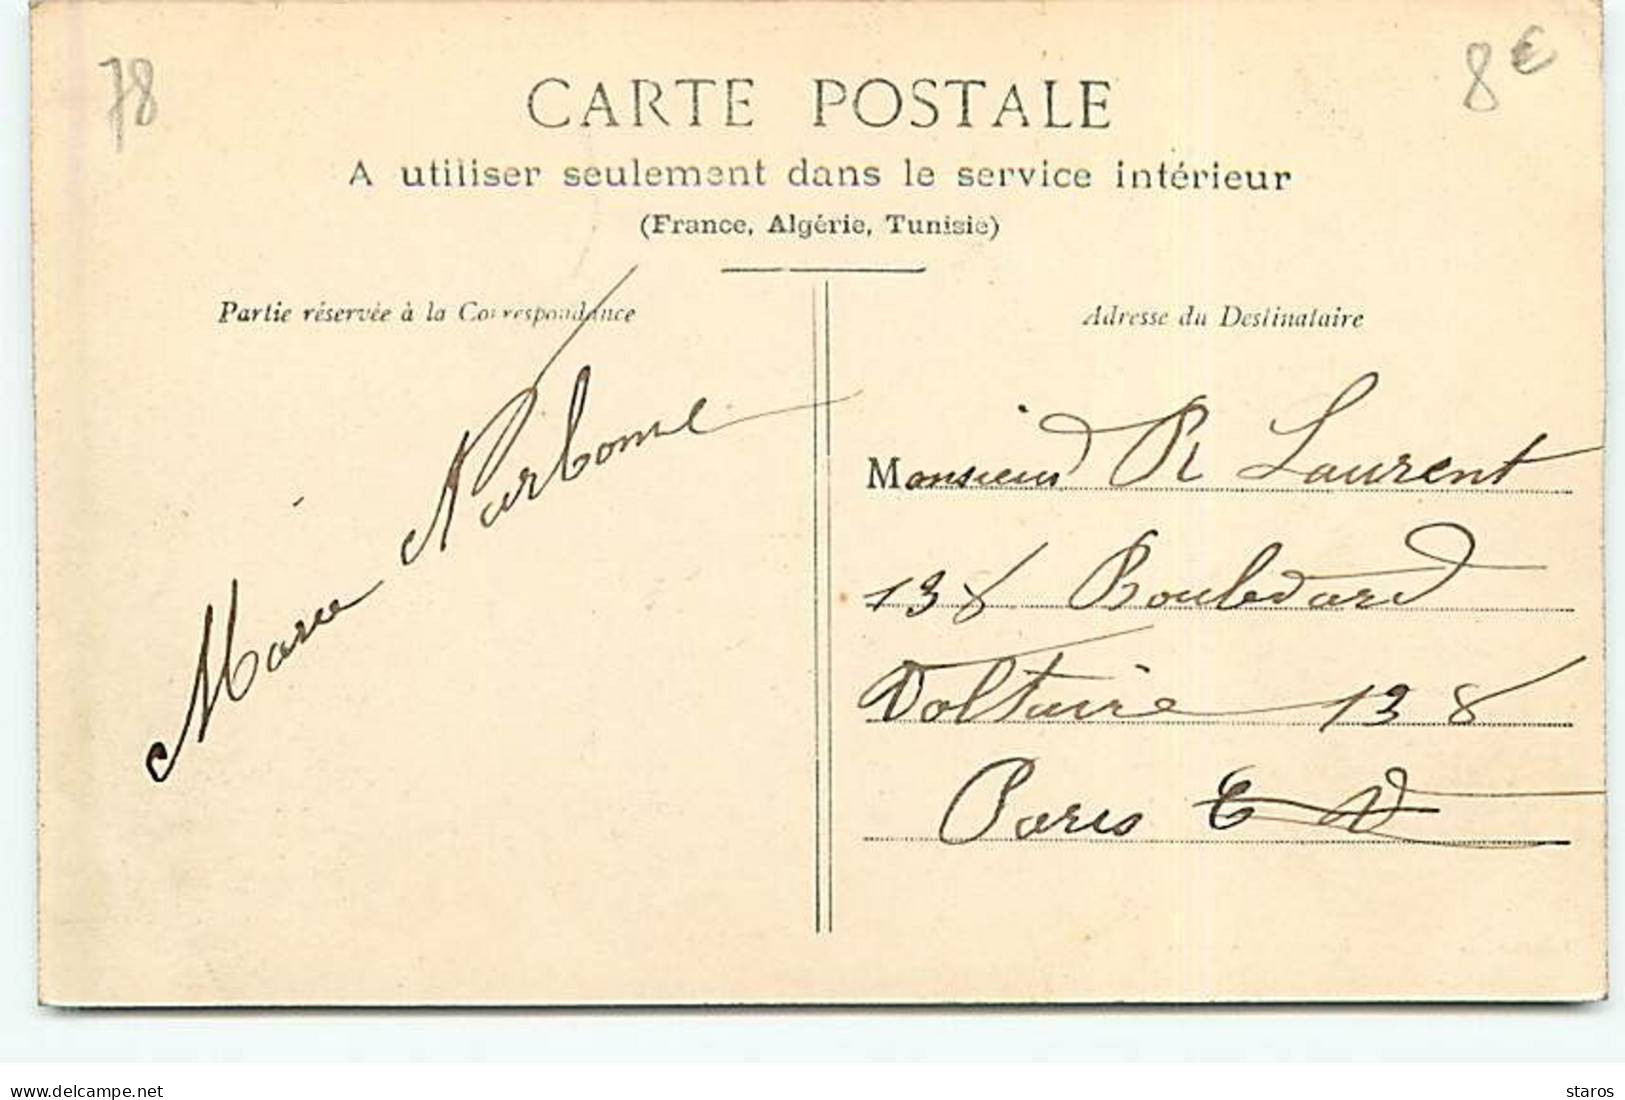 78
8€
CARTE POSTALE
A utiliser seulement dans le service intérieur
(France, Algérie, Tunisie)
Partie réservée à la Correspondance
Adresse du Destinataire
Marie Narbonne
Monsieur R Laurent
138 Boulevard
Voltaire 138
Paris
www.delcampe.net
staros